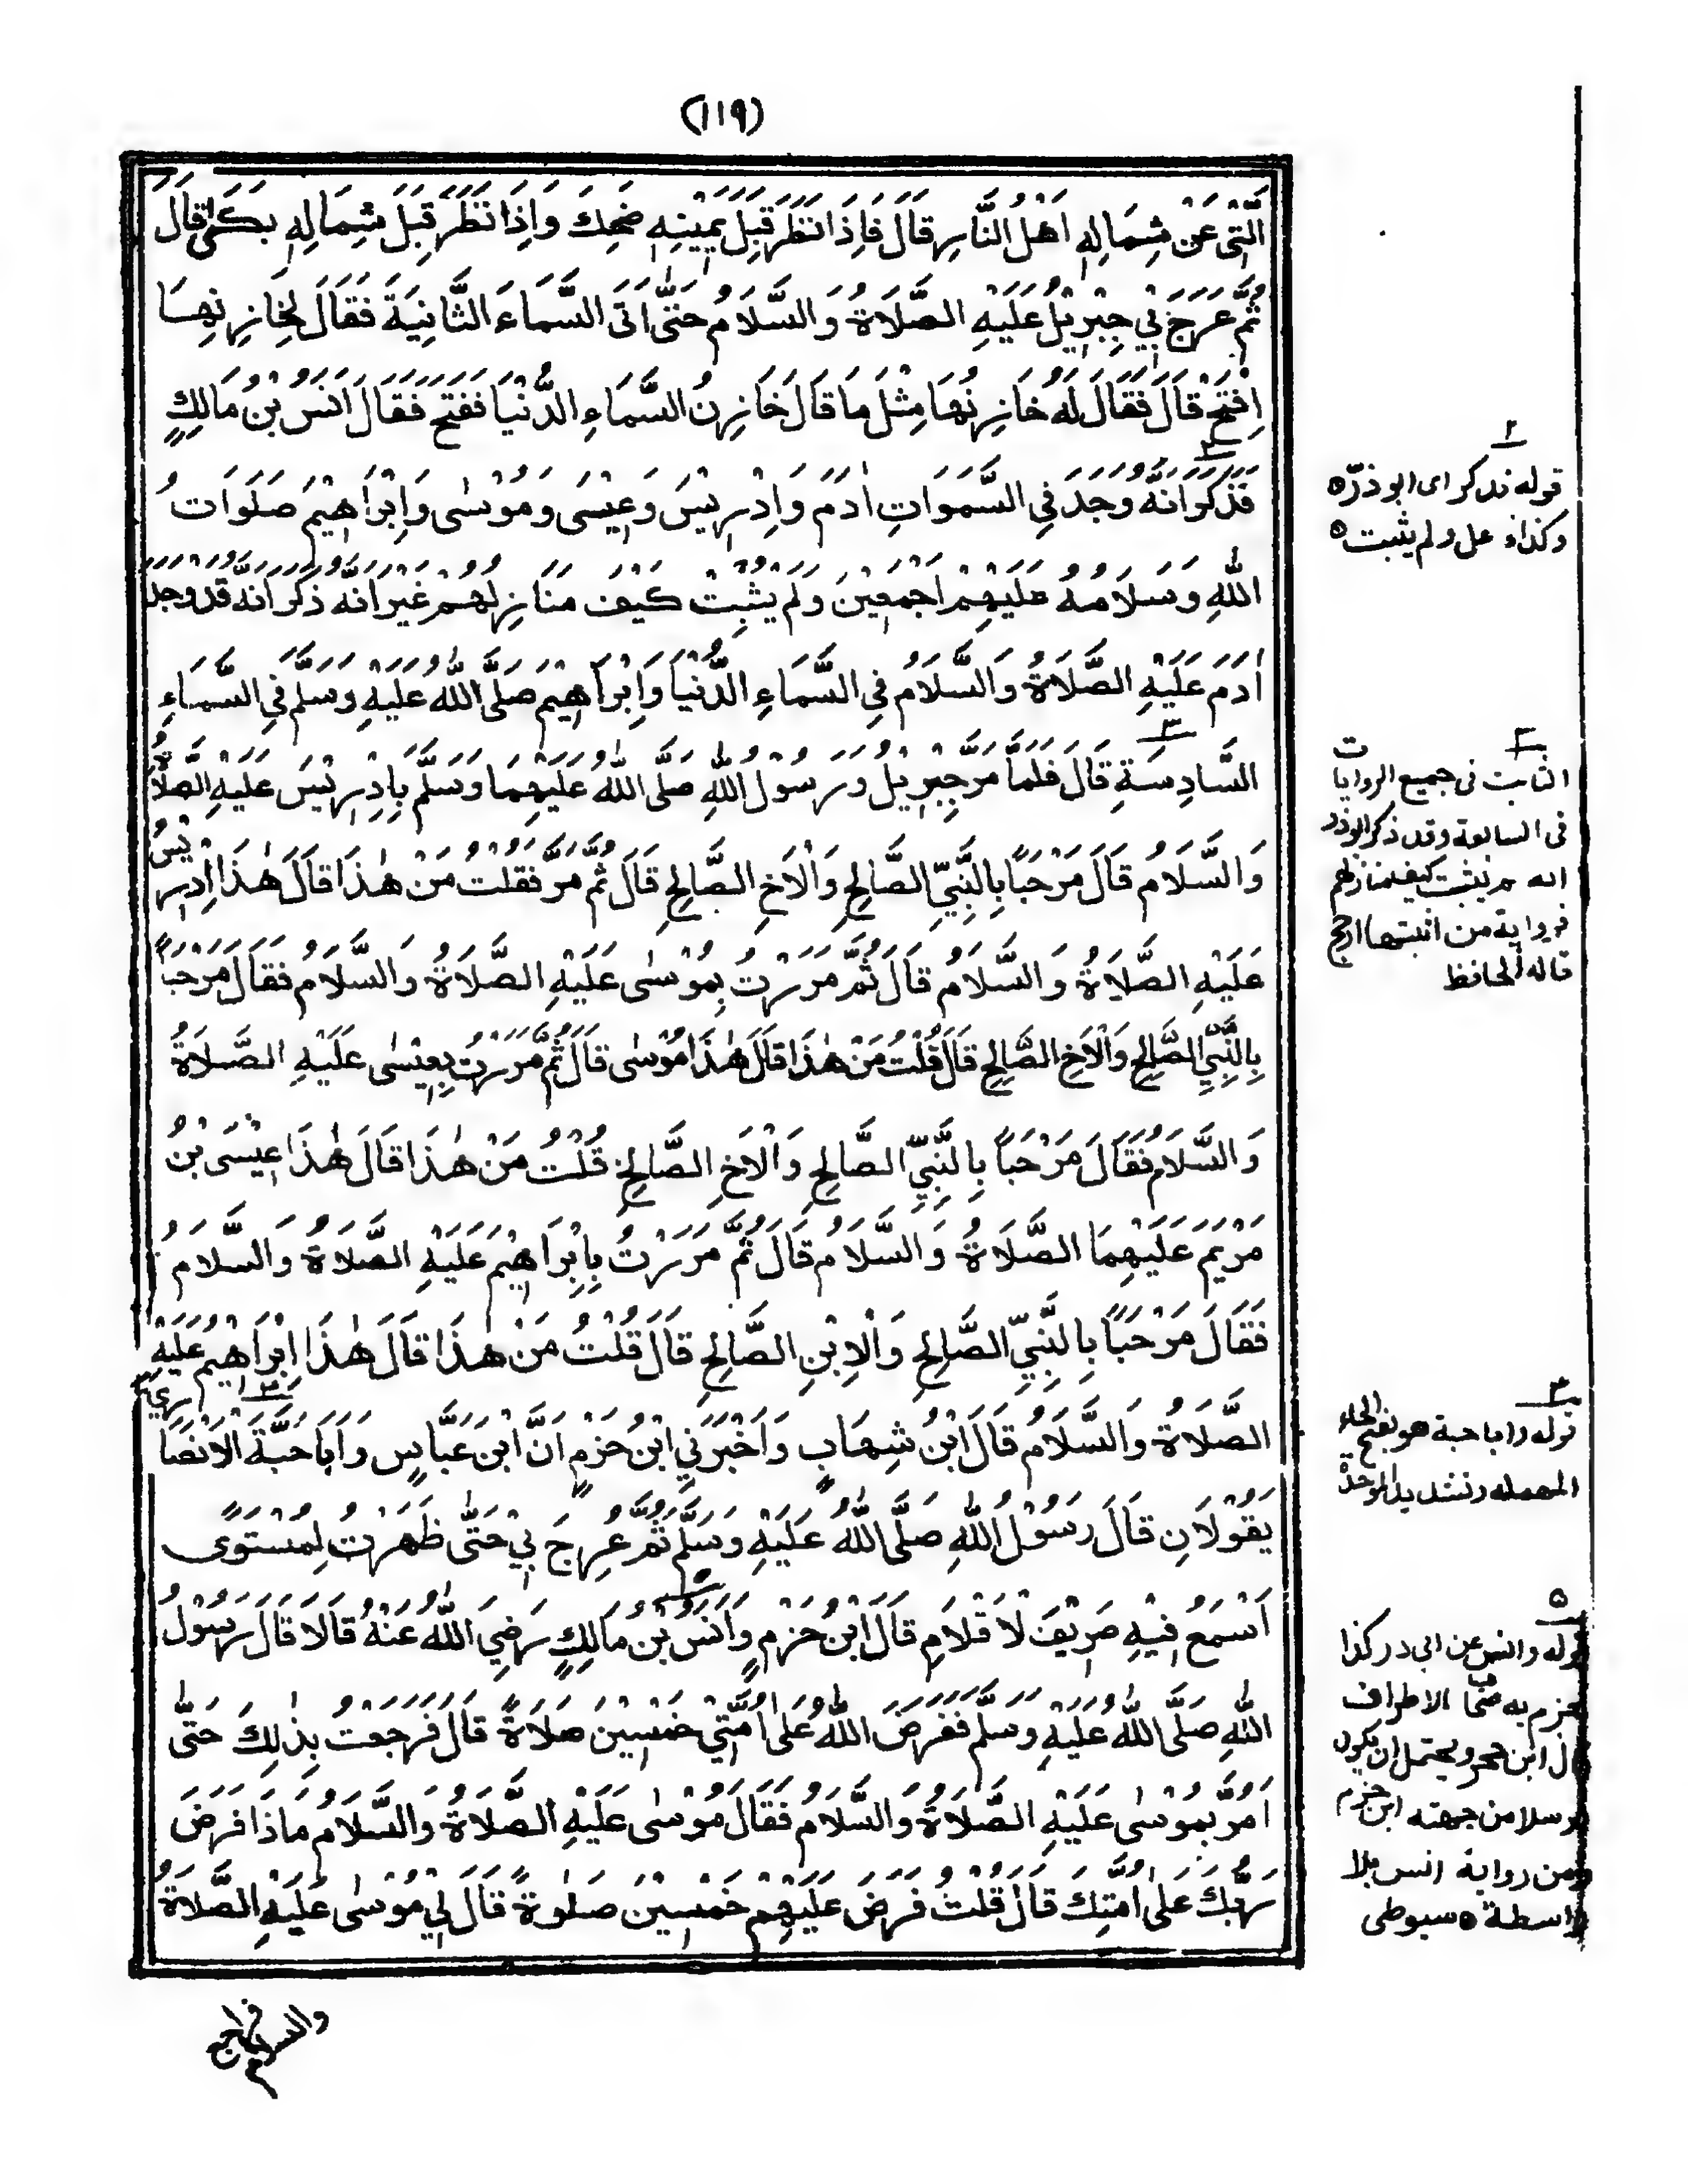 (١١٩)
الَّتِي عَنْ شِمَالِهِ اَهْلُ النَّارِ قَالَ فَاِذَا نَظَرَ قِبَلَ يَمِيْنِهِ ضَحِكَ وَاِذَا نَظَرَ قِبَلَ شِمَالِهِ بَكَى قَالَ
ثُمَّ عَرَجَ بِيْ جِبْرِيْلُ عَلَيْهِ الصَّلَاةُ وَالسَّلَامُ حَتَّى اَتَى السَّمَاءَ الثَّانِيَةَ فَقَالَ لِخَازِنِهَا
اِفْتَحْ قَالَ فَقَالَ لَهُ خَازِنُهَا مِثْلَ مَا قَالَ خَازِنُ السَّمَاءِ الدُّنْيَا فَفَتَحَ فَقَالَ اَنَسُ بْنُ مَالِكٍ
فَذَكَرَ اَنَّهُ وَجَدَ فِي السَّمَوَاتِ اٰدَمَ وَاِدْرِيْسَ وَعِيْسَى وَمُوْسٰى وَاِبْرَاهِيْمَ صَلَوَاتُ
اللّٰهِ وَسَلَامُهُ عَلَيْهِمْ اَجْمَعِيْنَ وَلَمْ يُثْبِتْ كَيْفَ مَنَازِلُهُمْ غَيْرَ اَنَّهُ ذَكَرَ اَنَّهُ قَدْ وَجَدَ
اٰدَمَ عَلَيْهِ الصَّلَاةُ وَالسَّلَامُ فِي السَّمَاءِ الدُّنْيَا وَاِبْرَاهِيْمَ صَلَّى اللّٰهُ عَلَيْهِ وَسَلَّمَ فِي السَّمَاءِ
السَّادِسَةِ قَالَ فَلَمَّا مَرَّ جِبْرِيْلُ وَرَسُوْلُ اللّٰهِ صَلَّى اللّٰهُ عَلَيْهِمَا وَسَلَّمَ بِاِدْرِيْسَ عَلَيْهِ الصَّلَاةُ
وَالسَّلَامُ قَالَ مَرْحَبًا بِالنَّبِيِّ الصَّالِحِ وَالْاَخِ الصَّالِحِ قَالَ ثُمَّ مَرَّ فَقُلْتُ مَنْ هٰذَا قَالَ هٰذَا اِدْرِيْسُ
عَلَيْهِ الصَّلَاةُ وَالسَّلَامُ قَالَ ثُمَّ مَرَرْتُ بِمُوْسٰى عَلَيْهِ الصَّلَاةُ وَالسَّلَامُ فَقَالَ مَرْحَبًا
بِالنَّبِيِّ الصَّالِحِ وَالْاَخِ الصَّالِحِ قَالَ قُلْتُ مَنْ هٰذَا قَالَ هٰذَا مُوْسٰى قَالَ ثُمَّ مَرَرْتُ بِعِيْسٰى عَلَيْهِ الصَّلَاةُ
وَالسَّلَامُ فَقَالَ مَرْحَبًا بِالنَّبِيِّ الصَّالِحِ وَالْاَخِ الصَّالِحِ قُلْتُ مَنْ هٰذَا قَالَ هٰذَا عِيْسَى بْنُ
مَرْيَمَ عَلَيْهِمَا الصَّلَاةُ وَالسَّلَامُ قَالَ ثُمَّ مَرَرْتُ بِاِبْرَاهِيْمَ عَلَيْهِ الصَّلَاةُ وَالسَّلَامُ
فَقَالَ مَرْحَبًا بِالنَّبِيِّ الصَّالِحِ وَالْاِبْنِ الصَّالِحِ قَالَ قُلْتُ مَنْ هٰذَا قَالَ هٰذَا اِبْرَاهِيْمُ عَلَيْهِ
الصَّلَاةُ وَالسَّلَامُ قَالَ ابْنُ شِهَابٍ وَاَخْبَرَنِي ابْنُ حَزْمٍ اَنَّ ابْنَ عَبَّاسٍ وَاَبَا حَبَّةَ الْاَنْصَارِيَّ
يَقُوْلَانِ قَالَ رَسُوْلُ اللّٰهِ صَلَّى اللّٰهُ عَلَيْهِ وَسَلَّمَ ثُمَّ عُرِجَ بِيْ حَتّٰى ظَهَرْتُ لِمُسْتَوًى
اَسْمَعُ فِيْهِ صَرِيْفَ لَاَقْلَامِ قَالَ ابْنُ حَزْمٍ وَاَنَسُ بْنُ مَالِكٍ رَضِيَ اللّٰهُ عَنْهُ قَالَا قَالَ رَسُوْلُ
اللّٰهِ صَلَّى اللّٰهُ عَلَيْهِ وَسَلَّمَ فَفَرَضَ اللّٰهُ عَلٰى اُمَّتِيْ خَمْسِيْنَ صَلَاةً قَالَ فَرَجَعْتُ بِذٰلِكَ حَتّٰى
اَمُرَّ بِمُوْسٰى عَلَيْهِ الصَّلَاةُ وَالسَّلَامُ فَقَالَ مُوْسٰى عَلَيْهِ الصَّلَاةُ وَالسَّلَامُ مَاذَا فَرَضَ
رَبُّكَ عَلٰى اُمَّتِكَ قَالَ قُلْتُ فَرَضَ عَلَيْهِمْ خَمْسِيْنَ صَلٰوةً قَالَ لِيْ مُوْسٰى عَلَيْهِ الصَّلَاةُ
والسلام فراجع
٢
قوله فذكر اى ابو ذرّ
وكذا فاعل ولم يثبت
٣
الثابت فى جميع الروايات
فى السابعة وقد ذكر ابوذر
انه لم يثبت كيف منازلهم
فرواية من اثبتها ارجح
قاله الحافظ
٣
قوله وابا حبة هو بفتح الحاء
المهملة وتشديد الموحدة
٥
قوله وانس عن ابى ذر كذا
جزم به صحا الاطراف
قال ابن حجر ويحتمل ان يكون
مرسلا من جهته ابن حزم
ومن رواية انس بلا
واسطة سيوطى